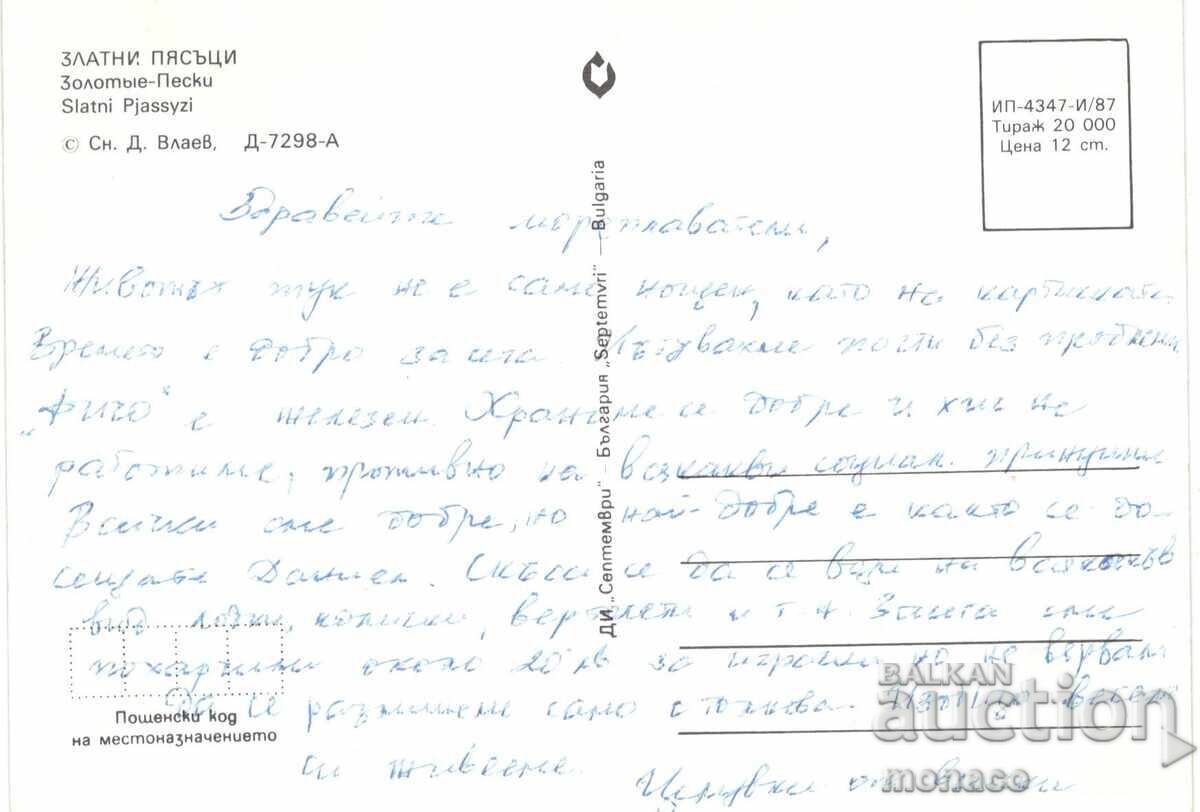 ЗЛАТНИ ПЯСЪЦИ
Золотые-Пески
Slatni Pjassyzi
© Сн. Д. Влаев, Д-7298-А
ИП-4347-И/87
Тираж 20 000
Цена 12 ст.
ДИ „Септември" — България „Septemvri" — Bulgaria
Здравейте мореплаватели,
Животът тук не е само нощен, като на картичката
Времето е добро засега. Пътувахме почти без проблеми
„Ричо" е железен. Храним се добре и хич не
работиме, противно на всякакви социал.
Всички сме добре, но най-добре е както се до-
сещате Даниел. се да се вози на всякакъв
вид лодки, вертолети и т.н. Засега сме
похарчили около 20 лв за играчки но не вярвам
да се разминеме само с толкова.
си живееме.
Целувки от всички
Пощенски код
на местоназначението
BALKAN
auction
monaco